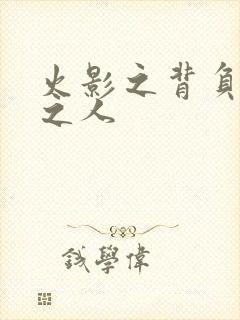 火影之背负
之人
钱學偉